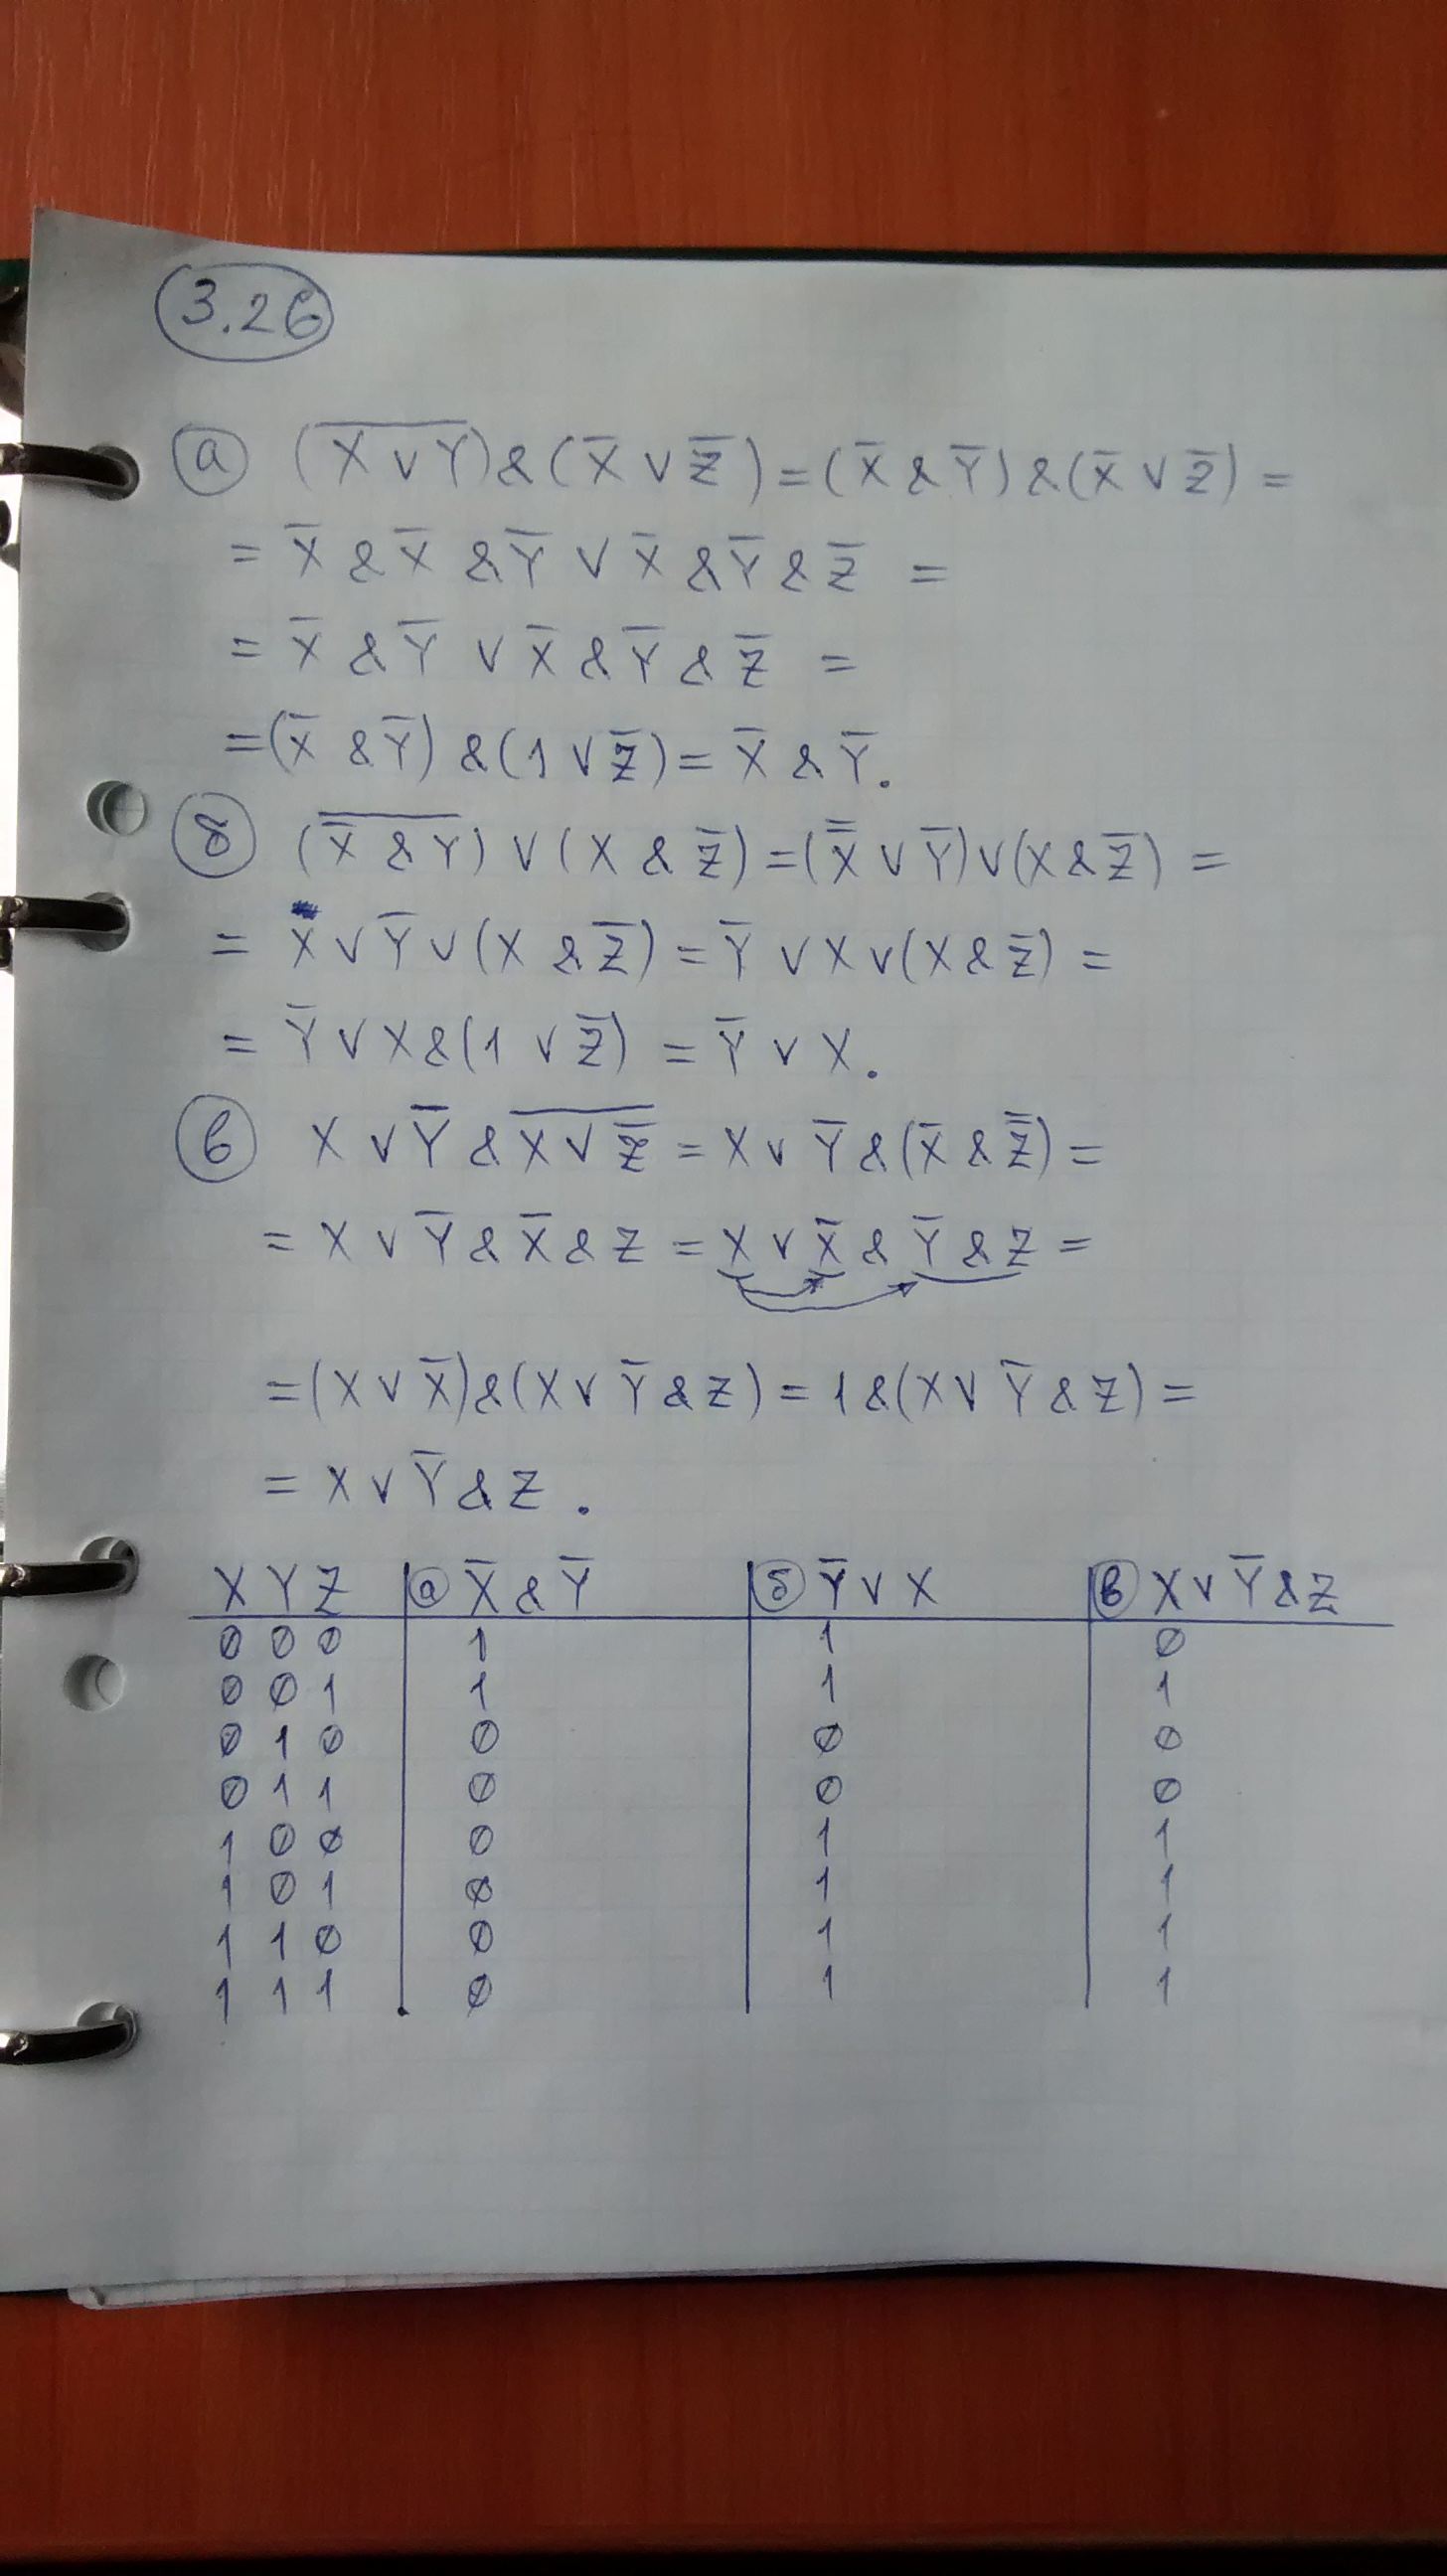 3.26
а) (X̅ ̅v̅ ̅Y̅) & (X̅ v Z̅) = (X̅ & Y̅) & (X̅ v Z̅) =
= X̅ & X̅ & Y̅ v X̅ & Y̅ & Z̅ =
= X̅ & Y̅ v X̅ & Y̅ & Z̅ =
= (X̅ & Y̅) & (1 v Z̅) = X̅ & Y̅.
б) (X̿ ̅&̅ ̅Y̅) v (X & Z̅) = (X̿ v Y̅) v (X & Z̅) =
= X v Y̅ v (X & Z̅) = Y̅ v X v (X & Z̅) =
= Y̅ v X & (1 v Z̅) = Y̅ v X.
в) X v Y̅ & X̅ ̅v̅ ̅Z̿ = X v Y̅ & (X̅ & Z̿) =
= X v Y̅ & X̅ & Z = X v X̅ & Y̅ & Z =
= (X v X̅) & (X v Y̅ & Z) = 1 & (X v Y̅ & Z) =
= X v Y̅ & Z.
X Y Z | а) X̅ & Y̅ | б) Y̅ v X | в) X v Y̅ & Z
0 0 0 | 1 | 1 | 0
0 0 1 | 1 | 1 | 1
0 1 0 | 0 | 0 | 0
0 1 1 | 0 | 0 | 0
1 0 0 | 0 | 1 | 1
1 0 1 | 0 | 1 | 1
1 1 0 | 0 | 1 | 1
1 1 1 | 0 | 1 | 1